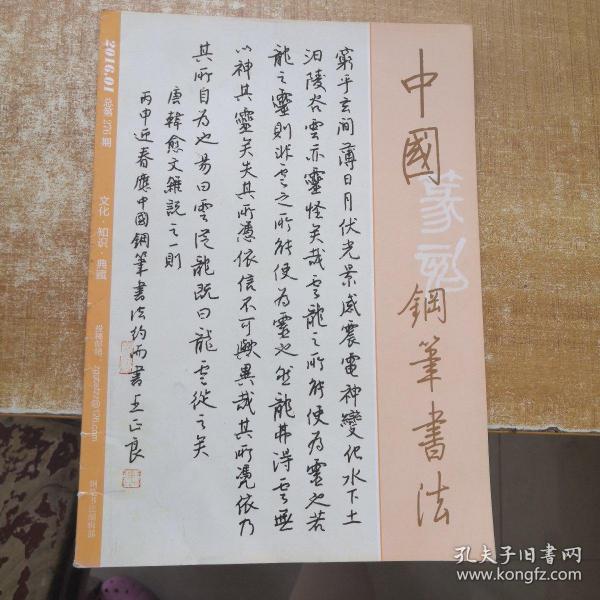 中國鋼筆書法
篆刻
窮乎玄間薄日月伏光景感震電神變化水下土
汩陵谷雲亦靈怪矣哉雲龍之所能使為靈也若
龍之靈則非雲之所能使為靈也然龍弗得雲無
以神其靈矣失其所憑依信不可歟異哉其所憑依乃
其所自為也易曰雲從龍既曰龍雲從之矣
唐韓愈文雜說之一則
丙申迎春應中國鋼筆書法約而書王正良
2016.01 总第276期
文化·知识·典藏
孔夫子旧书网
www.kongfz.com